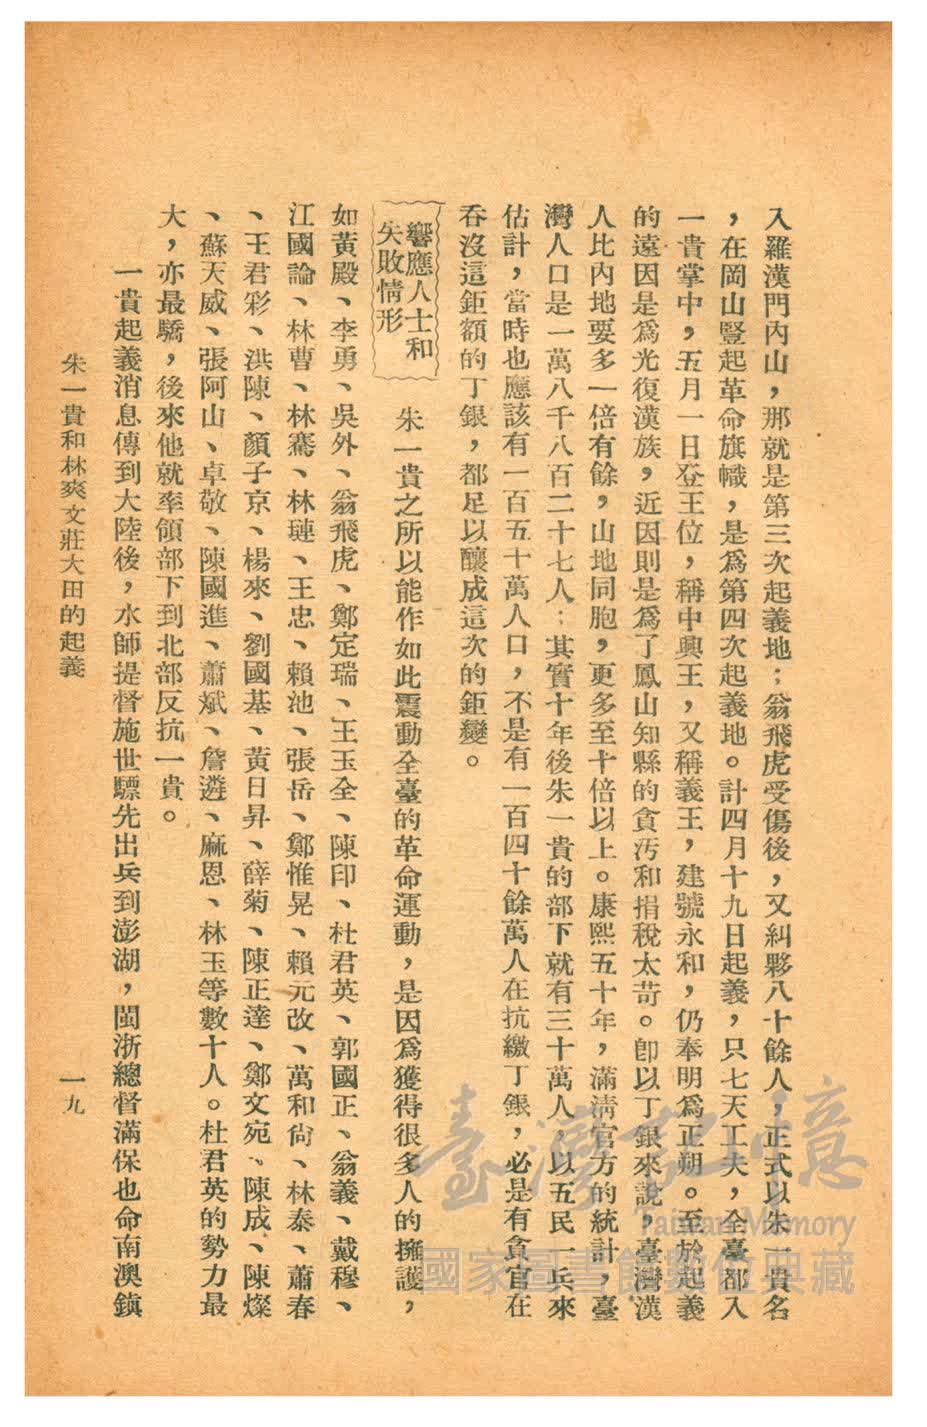 入羅漢門內山，那就是第三次起義地；翁飛虎受傷後，又糾夥八十餘人，正式以朱一貴名
，在岡山豎起革命旗幟，是爲第四次起義地。計四月十九日起義，只七天工夫，全臺都入
一貴掌中，五月一日登王位，稱中興王，又稱義王，建號永和，仍奉明爲正朔。至於起義
的遠因是爲光復漢族，近因則是爲了鳳山知縣的貪汚和捐稅太苛。卽以丁銀來說，臺灣漢
人比內地要多一倍有餘，山地同胞，更多至十倍以上。康熙五十年，滿淸官方的統計，臺
灣人口是一萬八千八百二十七人；其實十年後朱一貴的部下就有三十萬人，以五民一兵來
估計，當時也應該有一百五十萬人口，不是有一百四十餘萬人在抗繳丁銀，必是有貪官在
吞沒這鉅額的丁銀，都足以釀成這次的鉅變。
響應人士和
失敗情形
朱一貴之所以能作如此震動全臺的革命運動，是因爲獲得很多人的擁護，
如黃殿、李勇、吳外、翁飛虎、鄭定瑞、王玉全、陳印、杜君英、郭國正、翁義、戴穆、
江國論、林曹、林騫、林璉、王忠、賴池、張岳、鄭惟晃、賴元改、萬和尙、林泰、蕭春
、王君彩、洪陳、顏子京、楊來、劉國基、黃日昇、薛菊、陳正達、鄭文宛、陳成、陳燦
、蘇天威、張阿山、卓敬、陳國進、蕭斌、詹遴、麻恩、林玉等數十人。杜君英的勢力最
大，亦最驕，後來他就率領部下到北部反抗一貴。
一貴起義消息傳到大陸後，水師提督施世驃先出兵到澎湖，閩浙總督滿保也命南澳鎭
朱一貴和林爽文莊大田的起義
一九
臺灣記憶
Taiwan Memory
國家圖書館數位典藏